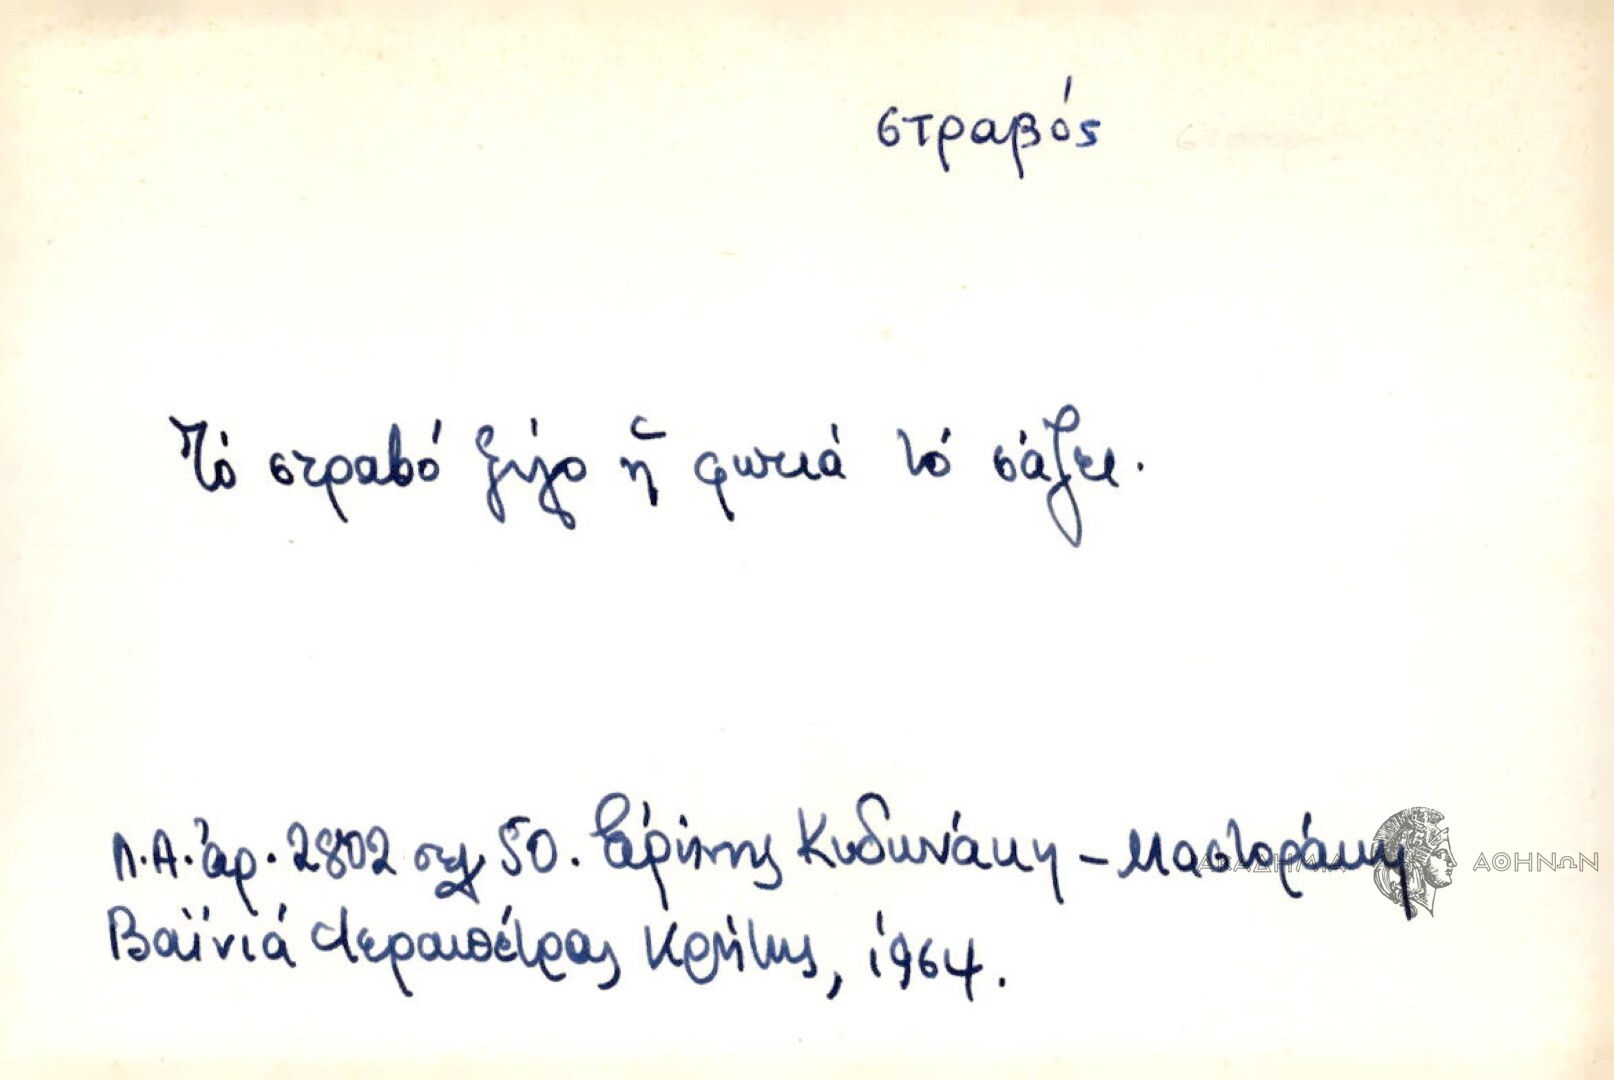 στραβός
Τό στραβό ξύλο ἡ φωτιά τό σάζει.
Λ.Α. ἀρ. 2802 σελ. 50. Εἰρήνης Κυδωνάκη – Μαστοράκη
Βαϊνιά Ἱεραπέτρας Κρήτης, 1964.
ΑΚΑΔΗΜΙΑ ΑΘΗΝΩΝ